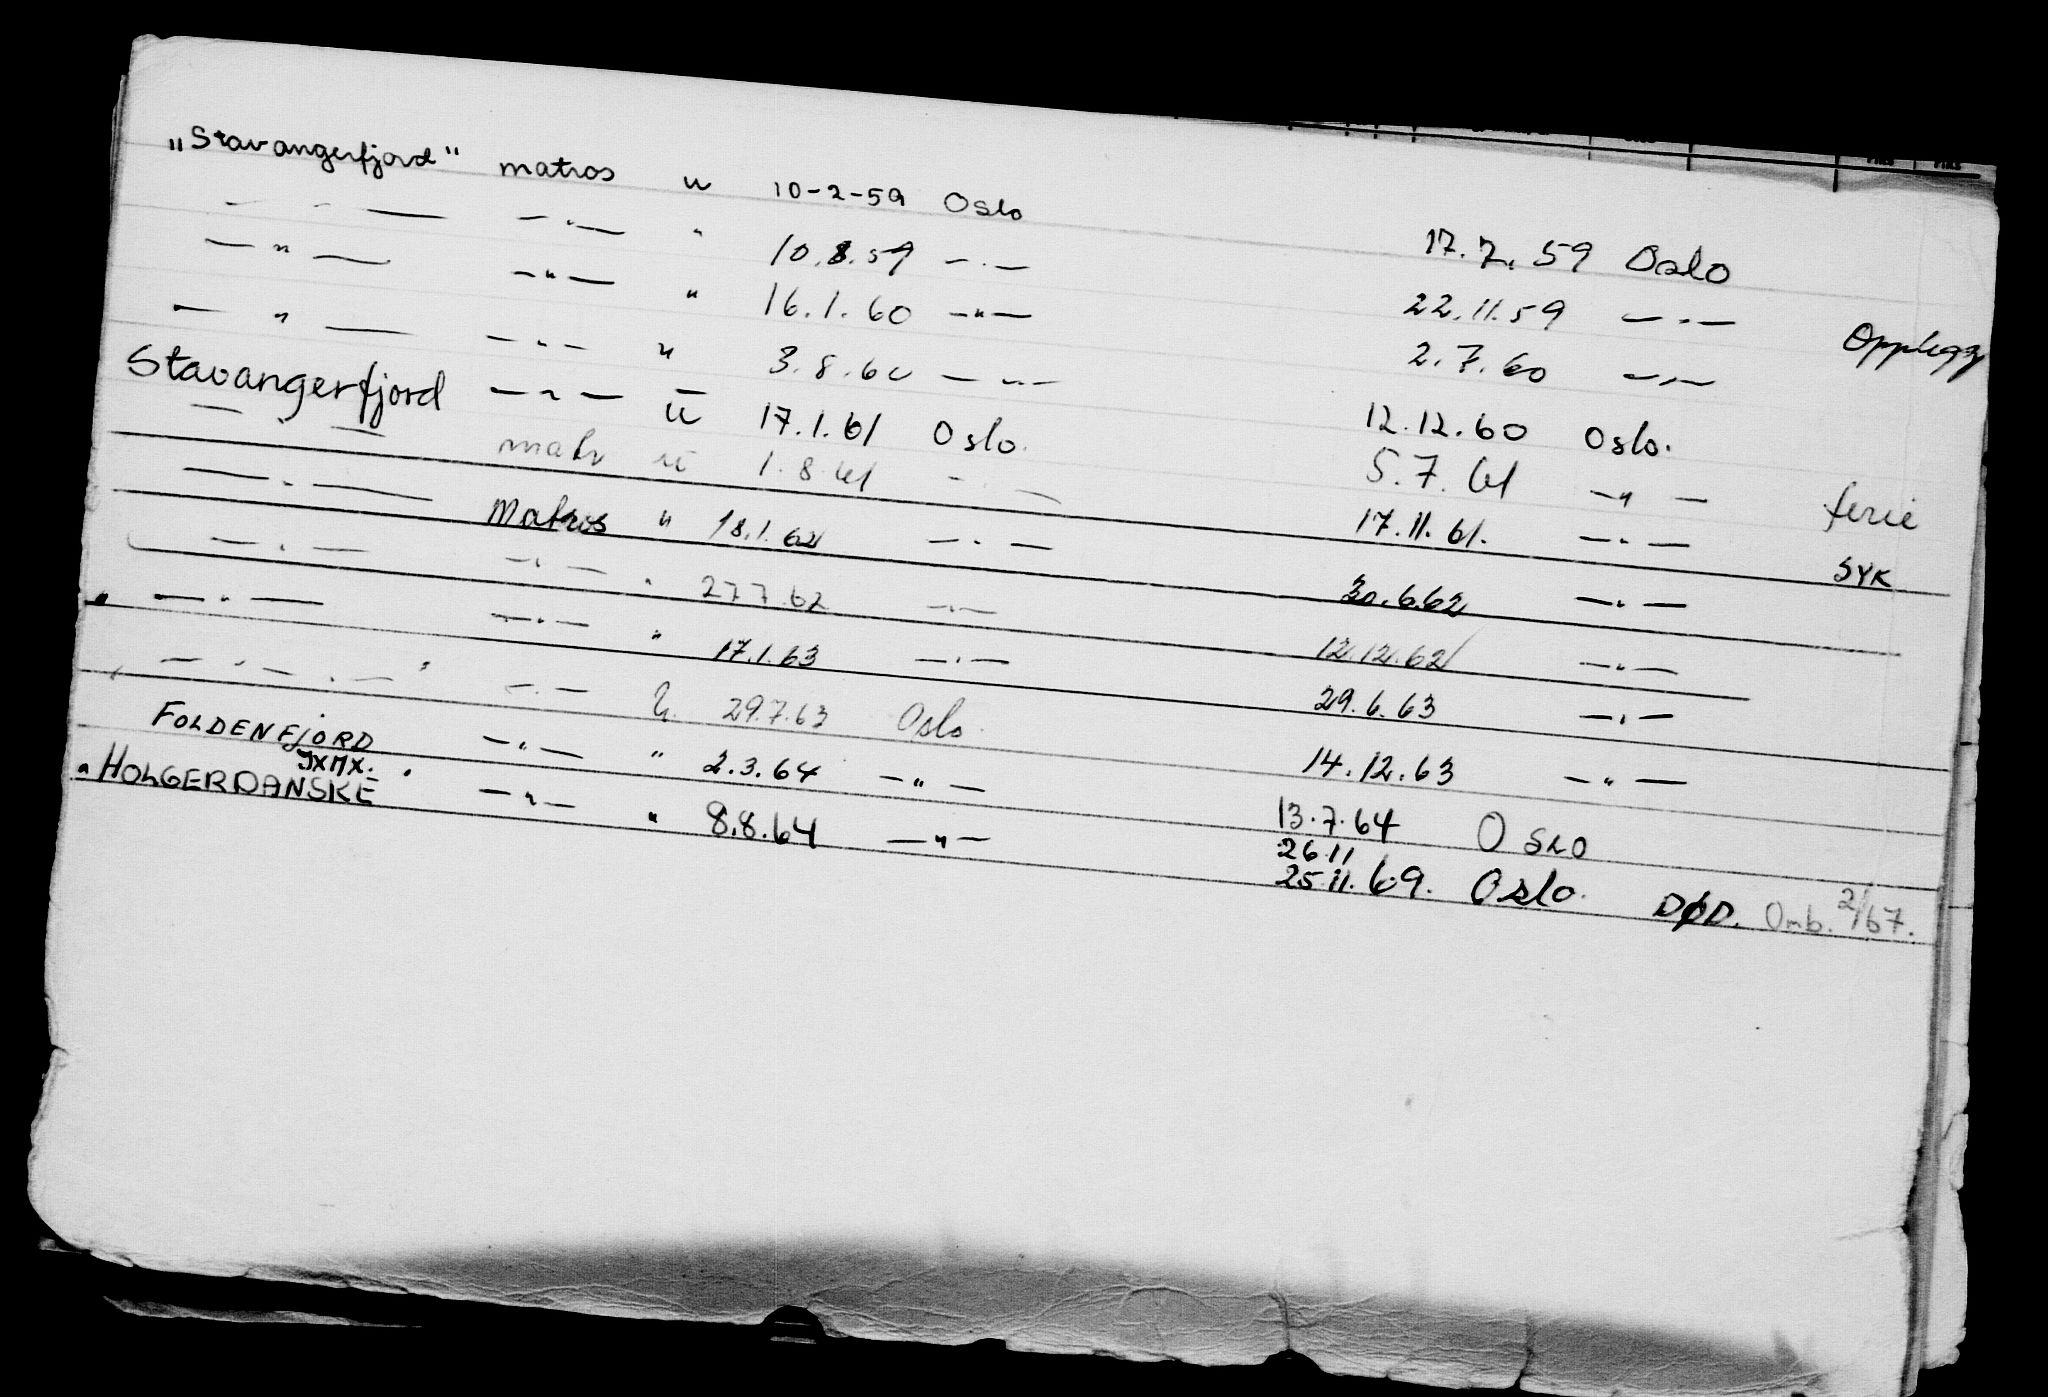 „Stavangerfjord" matros u 10-2-59 Oslo 17.7.59 Oslo
— " — — " — " 10.8.59 — " — 22.11.59 — " — Opplegg
— " — — " — " 16.1.60 — " — 2.7.60 — " —
— " — — " — " 3.8.60 — " — 12.12.60 Oslo.
Stavangerfjord — " — u 17.1.61 Oslo. 5.7.61 — " — ferie
— — matr u 1.8.61 — " — 17.11.61. — " — SYK
— " — Matros " 18.1.62 — " — 30.6.62 — " —
— " — — " — " 27.7.62 — " — 12.12.62 — " —
— " — — " — " 17.1.63 — " — 29.6.63 — " —
— " — " — — " — u. 29.7.63 Oslo. 14.12.63 — " —
FOLDENFJORD — " — " 2.3.64 — " — 13.7.64 OSLO
JXMX.
"HOLGER DANSKE — " — " 8.8.64 — " — 25.11.69. Oslo. DØD. Omb. 2/67.
26.11